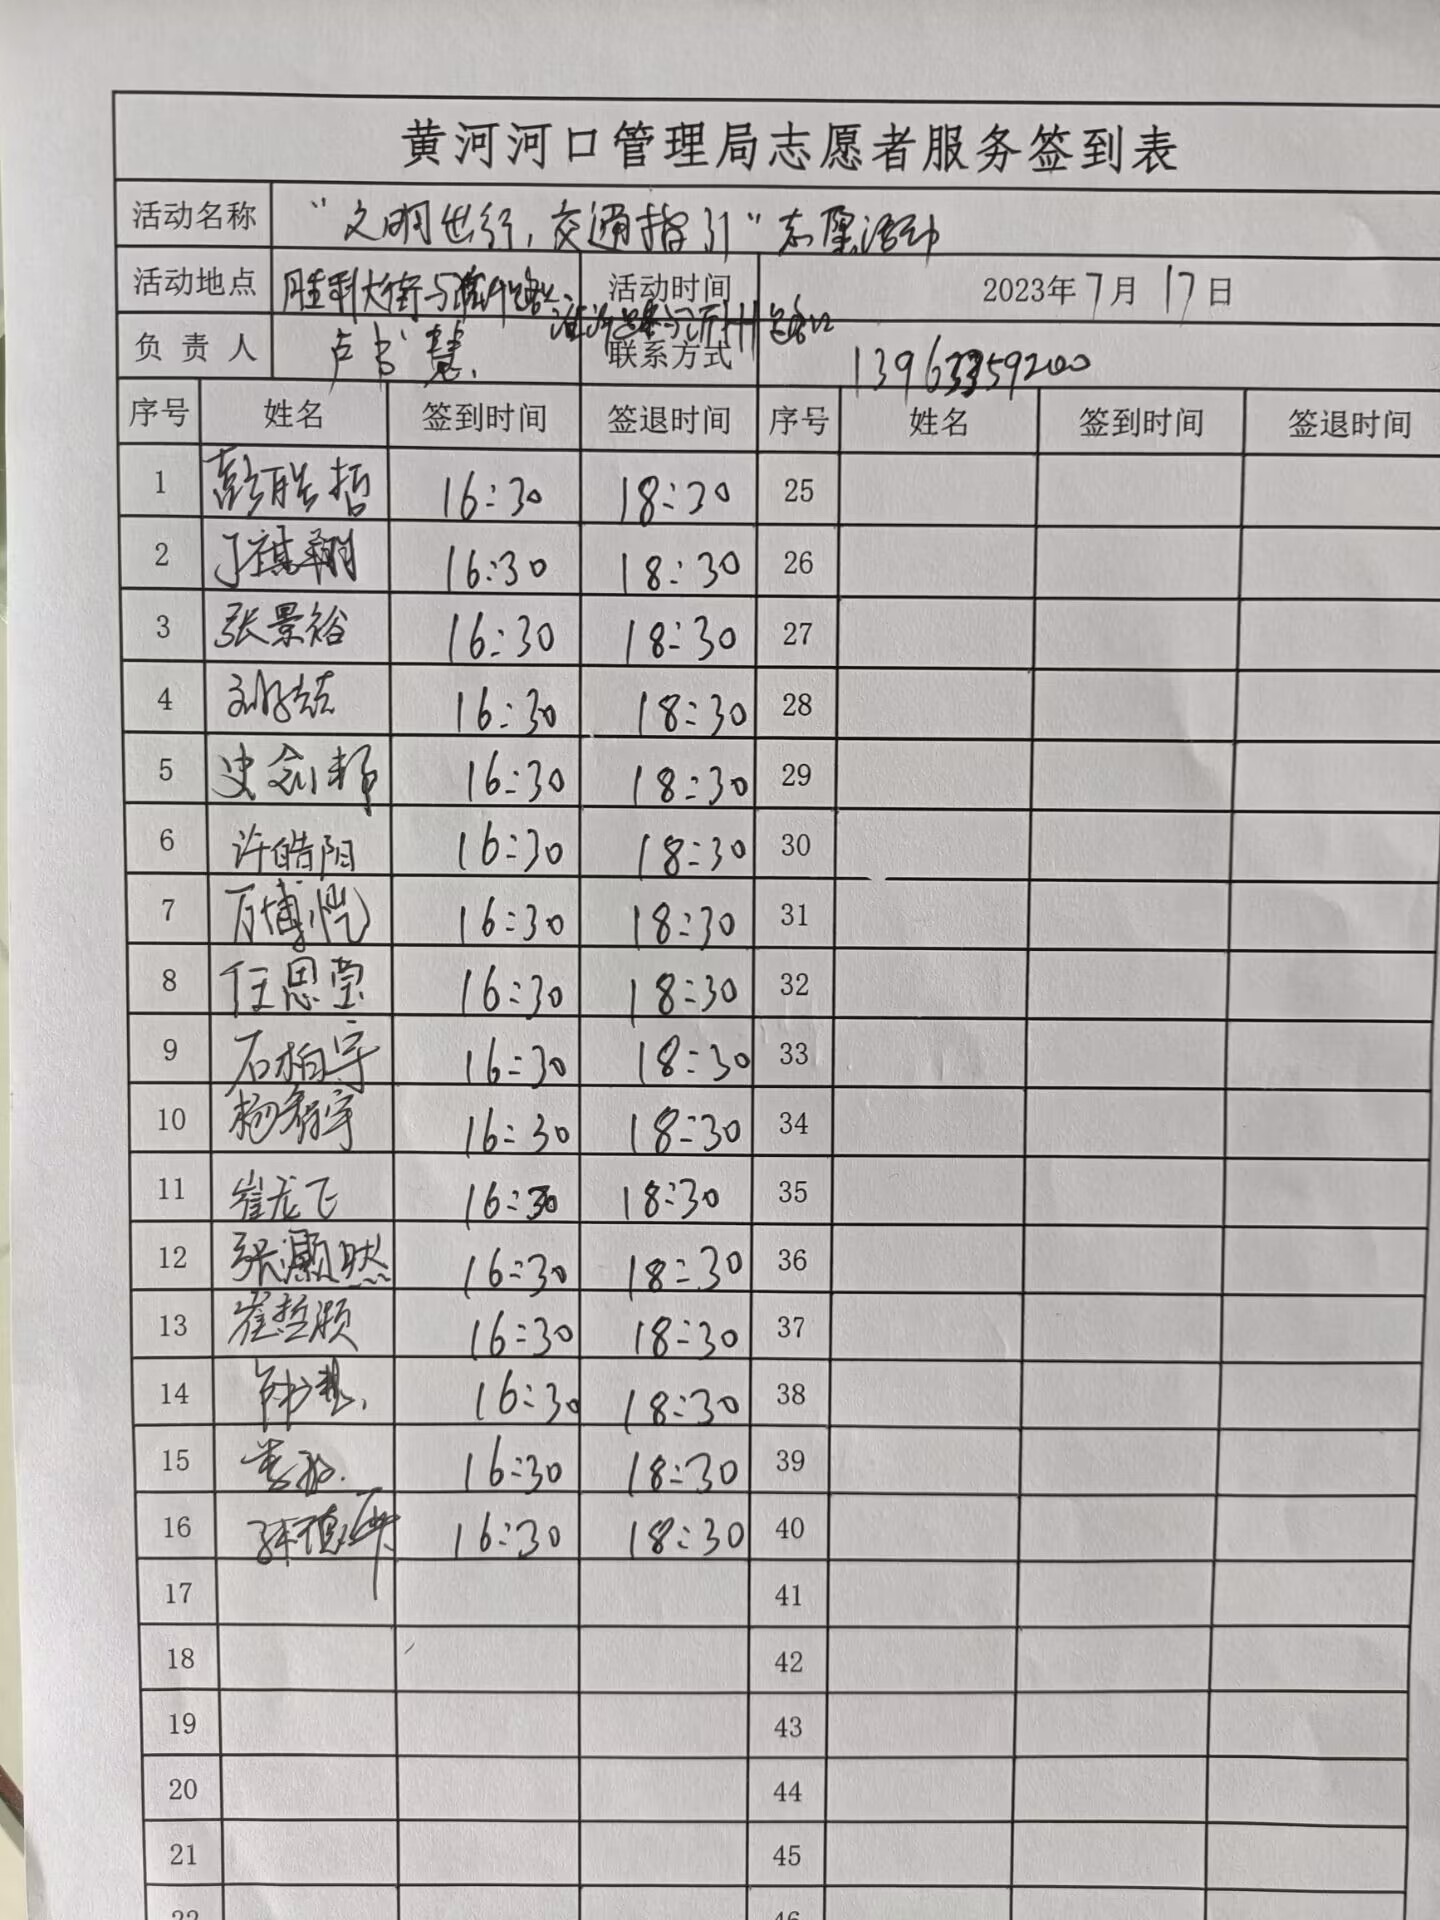 黄河河口管理局志愿者服务签到表
活动名称 "文明出行,交通指引"志愿活动
活动地点 胜利大街与淮河路 活动时间 2023年7月17日
负责人 卢书慧 联系方式 13963359200
序号 姓名 签到时间 签退时间 序号 姓名 签到时间 签退时间
1 16:30 18:30 25
2 丁祺翔 16:30 18:30 26
3 张景裕 16:30 18:30 27
4 16:30 18:30 28
5 史 16:30 18:30 29
6 许皓阳 16:30 18:30 30
7 万博恺 16:30 18:30 31
8 任思莹 16:30 18:30 32
9 石柏宇 16:30 18:30 33
10 杨睿宇 16:30 18:30 34
11 崔龙飞 16:30 18:30 35
12 张灏然 16:30 18:30 36
13 崔哲颜 16:30 18:30 37
14 16:30 18:30 38
15 16:30 18:30 39
16 16:30 18:30 40
17 41
18 42
19 43
20 44
21 45
22 46